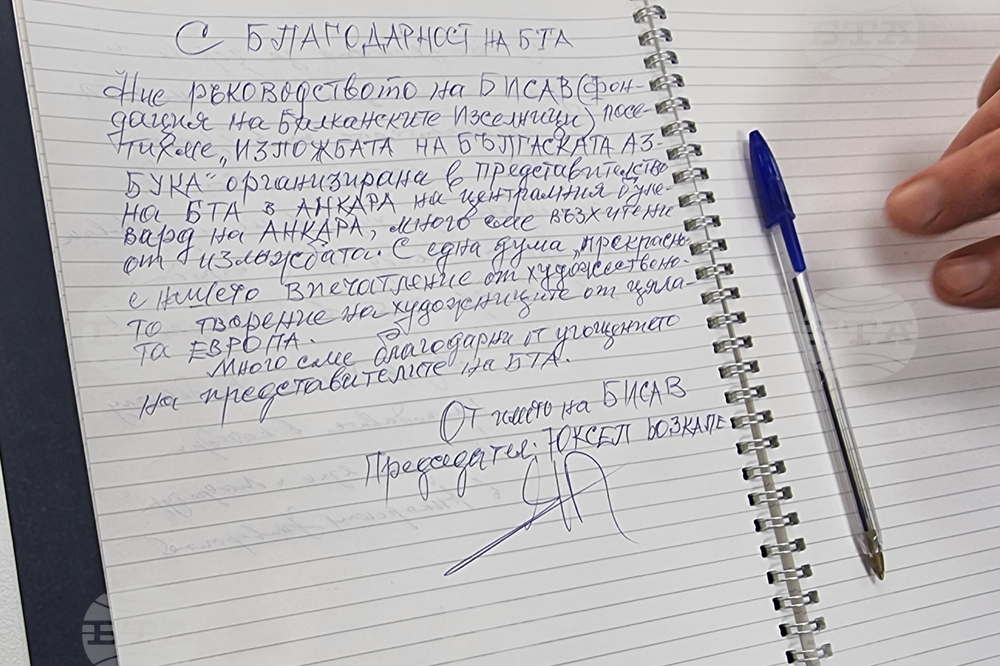 С БЛАГОДАРНОСТ НА БТА
Ние ръководството на БИСАВ (Фон-
дация на Балканските Изселници) посе-
тихме „ИЗЛОЖБАТА НА БЪЛГАСКАТА АЗ-
БУКА" организирана в Представителство
на БТА в АНКАРА на централния буле-
вард на АНКАРА, много сме възхитени
от изложбата. С една дума „прекрасн
е нашето впечатление от художествено-
то творение на художниците от цяла-
та ЕВРОПА.
Много сме благодарни от угощението
на представителите на БТА.
От името на БИСАВ
Председател: ЮКСЕЛ ЬОЗКАЛЕ
BTA
BTA
BTA